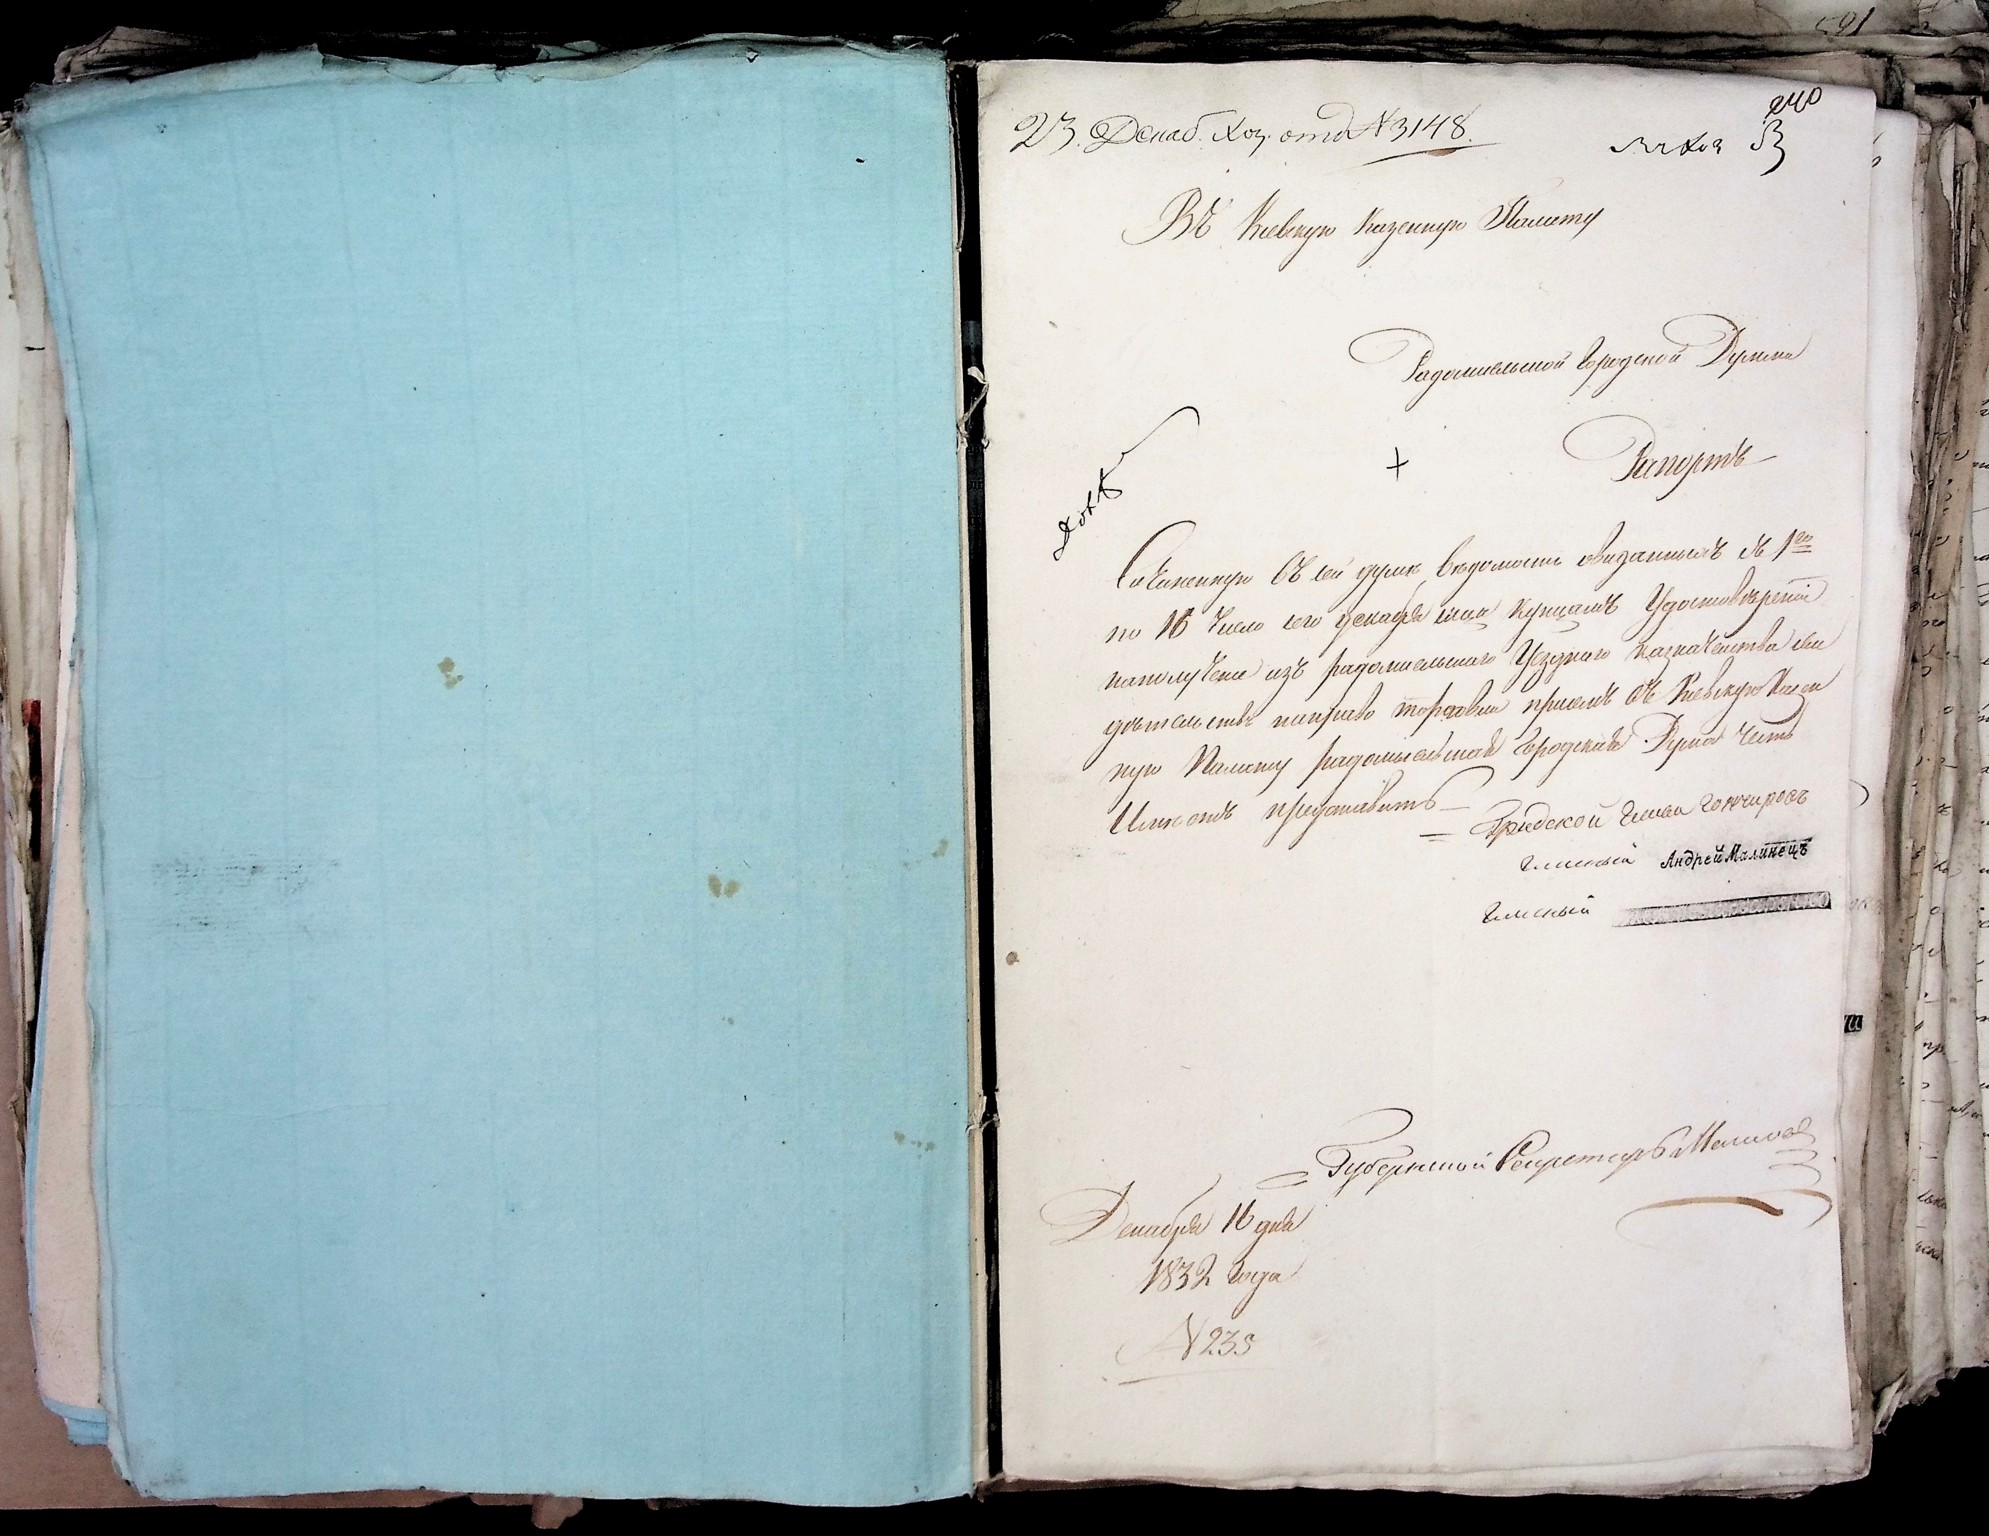 240
23. Декаб. Хоз. отд № 3148.
Въ Киевскую Казенную Палату
Радомысльской Городской Думы
Рапортъ
Сочиненную въ сей думе ведомость овыданныхъ съ 1го
по 16 число сего декабря месяца купцамъ Удостоверений
наполучение изъ радомысльского Уездного казначейства сви
детельствъ направо торговли приемъ въ Киевскую Казен
ную Палату радомысльская Городская Дума Честь
Имеетъ представить
Градской Глава Гончаровъ
Гласный Андрей Малинецъ
Гласный
Губернский Секретарь
Декабря 16 дня
1832 года
№ 235